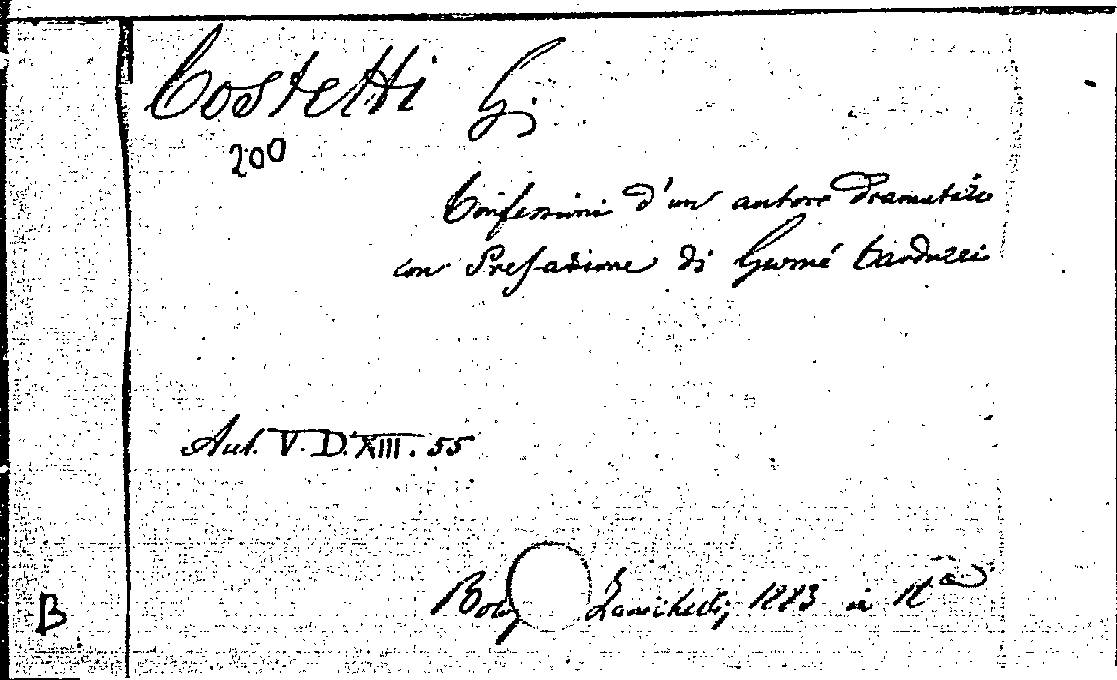 Costetti G.
200
Confessioni d'un autore dramatico
con Prefazione di Giosuè Carducci
Aul. V. D. XIII. 55
Bolog Zanichelli, 1883 in
B